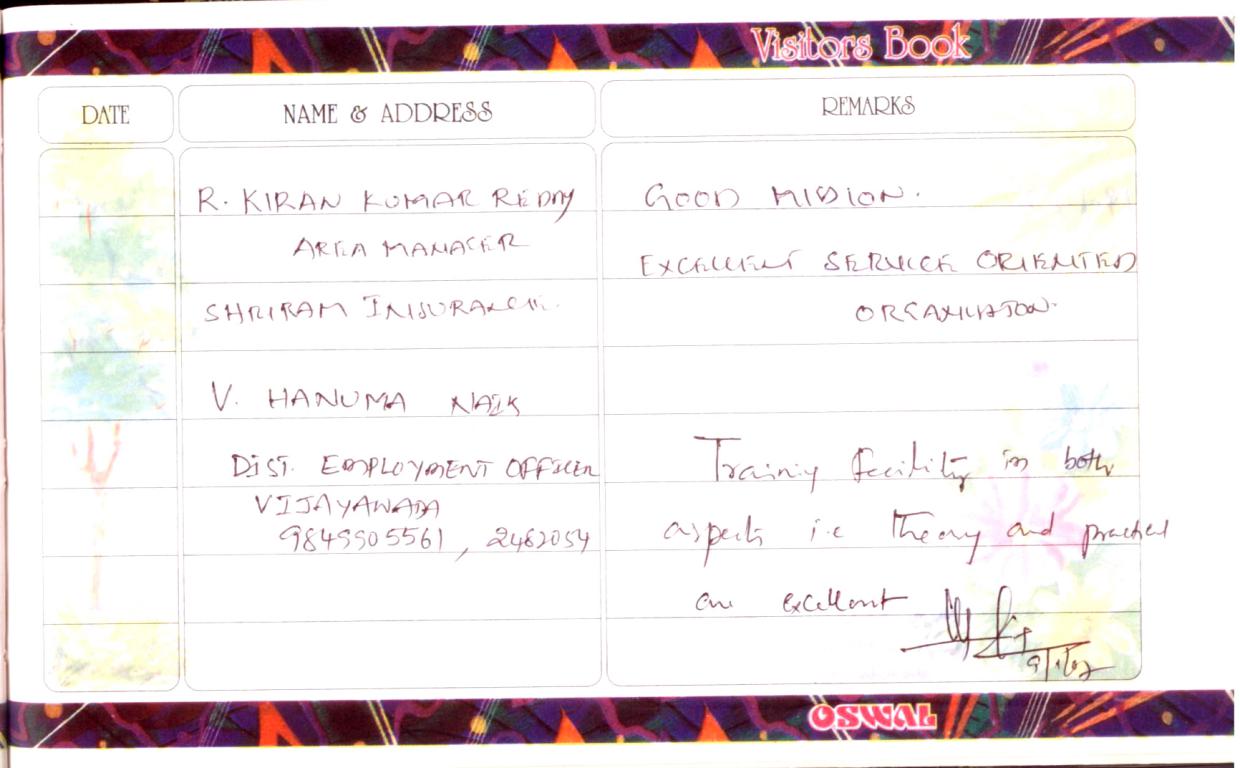 Visitors Book
DATE
NAME & ADDRESS
REMARKS
R. KIRAN KUMAR REDDY
AREA MANAGER
SHRIRAM INSURANCE.
GOOD MISSION.
EXCELLENT SERVICE ORIENTED
ORGANISATION.
V. HANUMA NAIK
DIST. EMPLOYMENT OFFICER
VIJAYAWADA
9849905561, 2482054
Training facility in both
aspects i.e theory and practical
are excellent
OSWAL